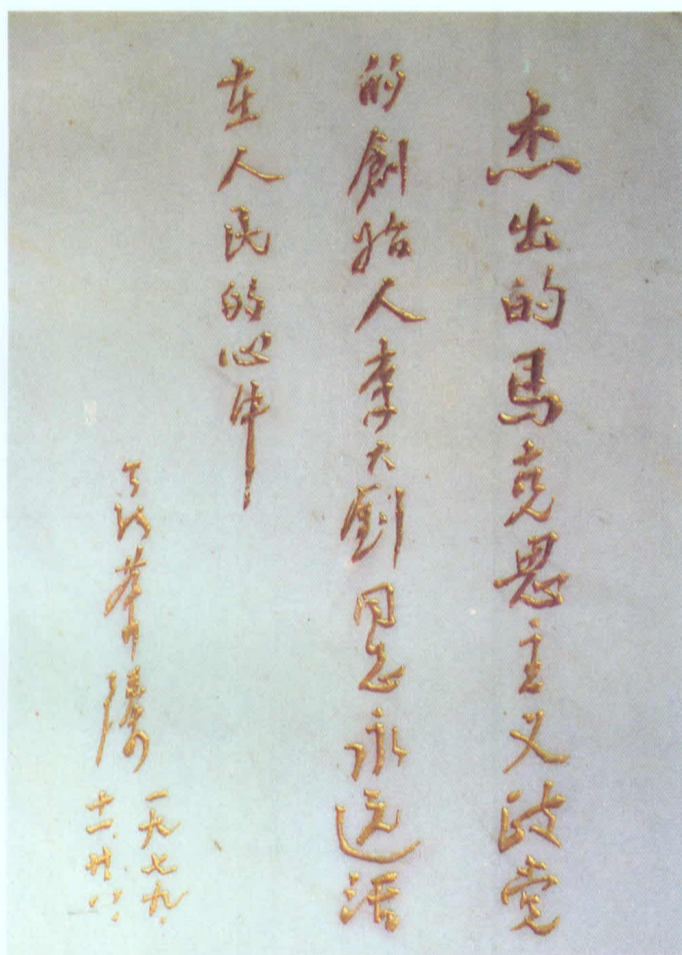 杰出的馬克思主义政党
的創始人李大釗同志永远活
在人民的心中
一九七九、
十一、廿八、